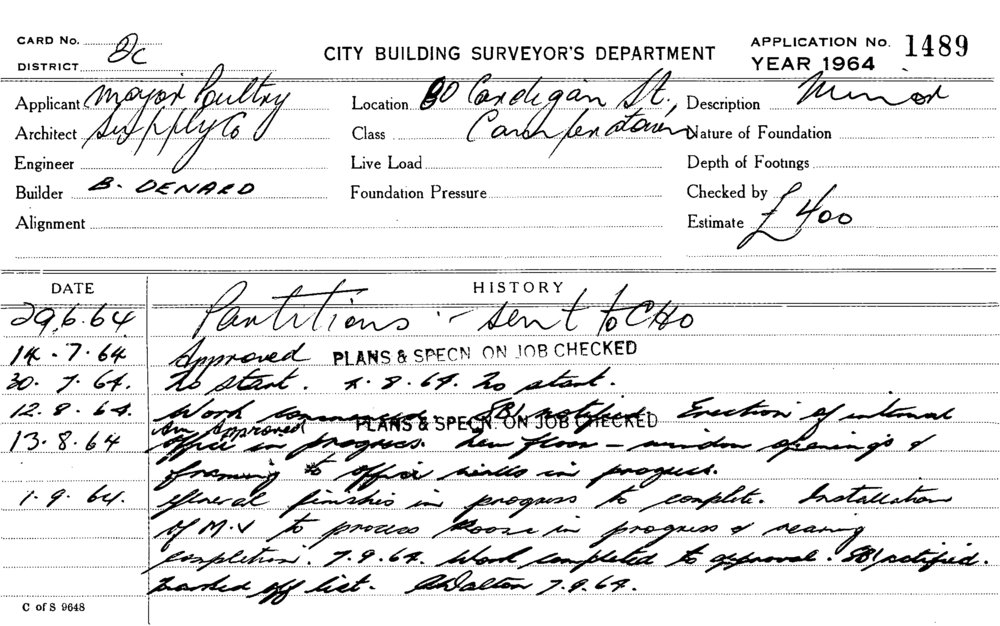 CARD No. 2c
DISTRICT
CITY BUILDING SURVEYOR'S DEPARTMENT
APPLICATION No. 1489
YEAR 1964
Applicant Major Poultry
Location 80 Cardigan St.,
Description Minor
Architect Supply Co
Class Camperdown
Nature of Foundation
Engineer
Live Load
Depth of Footings
Builder B. DENARD
Foundation Pressure
Checked by
Alignment
Estimate £400
DATE HISTORY
29.6.64 Partitions :- Sent to CHO
14.7.64 Approved PLANS & SPECN ON JOB CHECKED
30.7.64. No start. 8.64. No start.
12.8.64. Work commenced. SBI notified. Erection of internal
An Approved PLANS & SPECN. ON JOB CHECKED
13.8.64 office in progress. New floor - window openings &
framing to office walls in progress.
1.9.64. General finishes in progress to complete. Installation
of M.V to process Room in progress & nearing
completion. 7.9.64. Work completed to approval. SBI notified.
Marked off list. Dalton 7.9.64.
C of S 9648